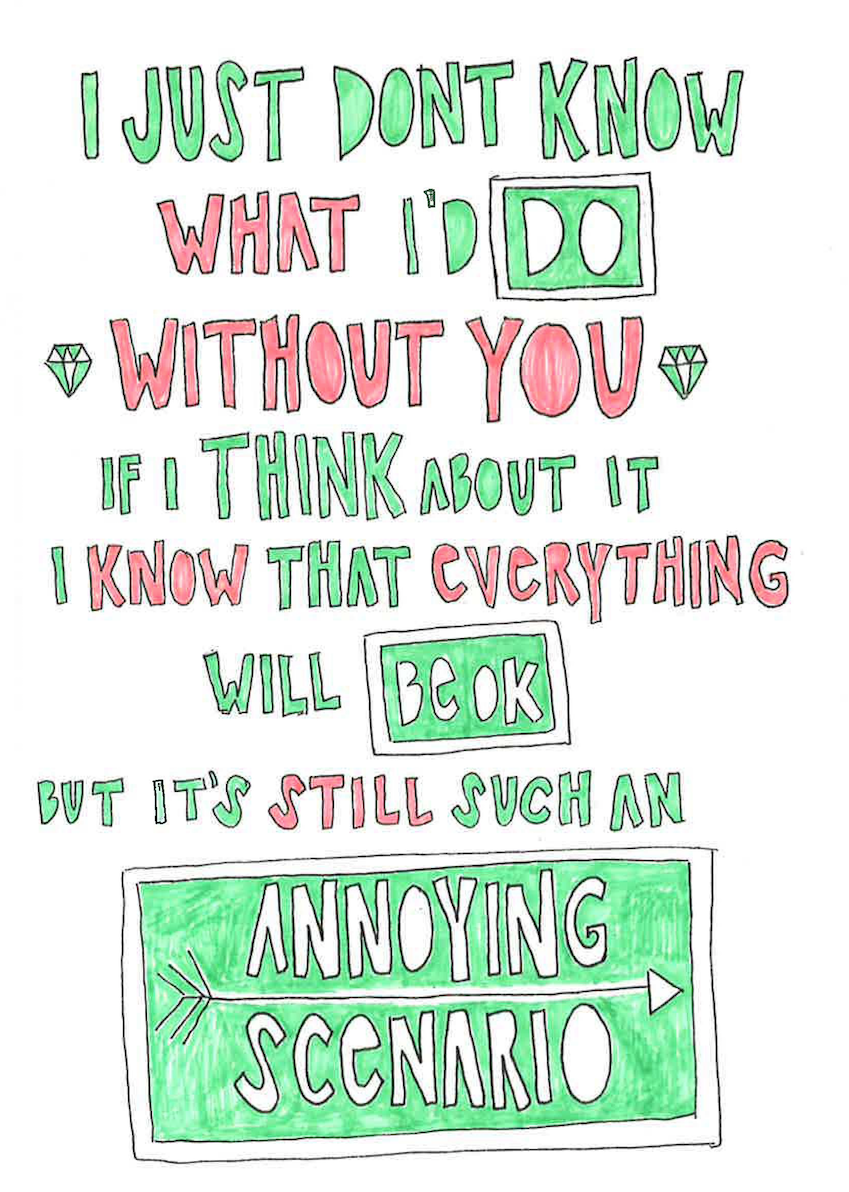 I JUST DONT KNOW
WHAT I'D DO
WITHOUT YOU
IF I THINK ABOUT IT
I KNOW THAT EVERYTHING
WILL BE OK
BUT IT'S STILL SUCH AN
ANNOYING
SCENARIO